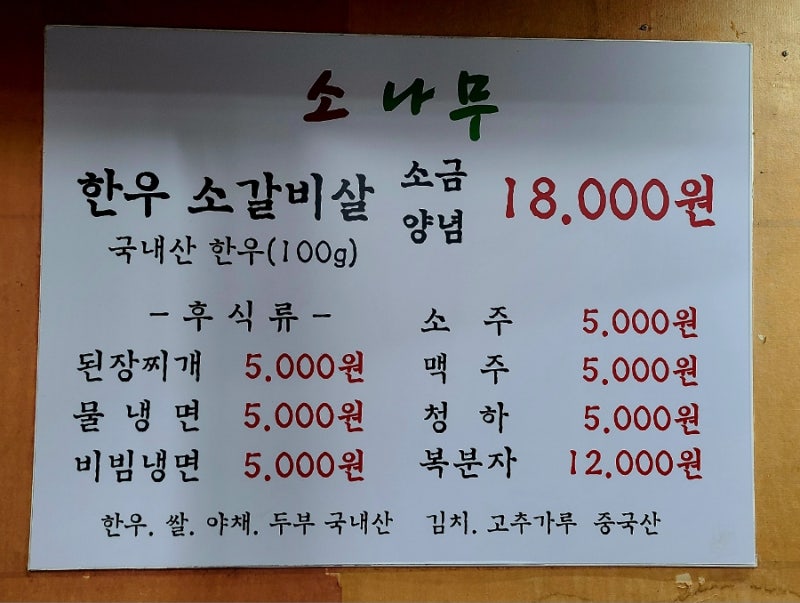 소나무
한우 소갈비살 소금 양념 18.000원
국내산 한우(100g)
- 후 식 류 -
된장찌개 5.000원
물 냉 면 5.000원
비빔냉면 5.000원
소 주 5.000원
맥 주 5.000원
청 하 5.000원
복분자 12.000원
한우. 쌀. 야채. 두부 국내산 김치. 고추가루 중국산